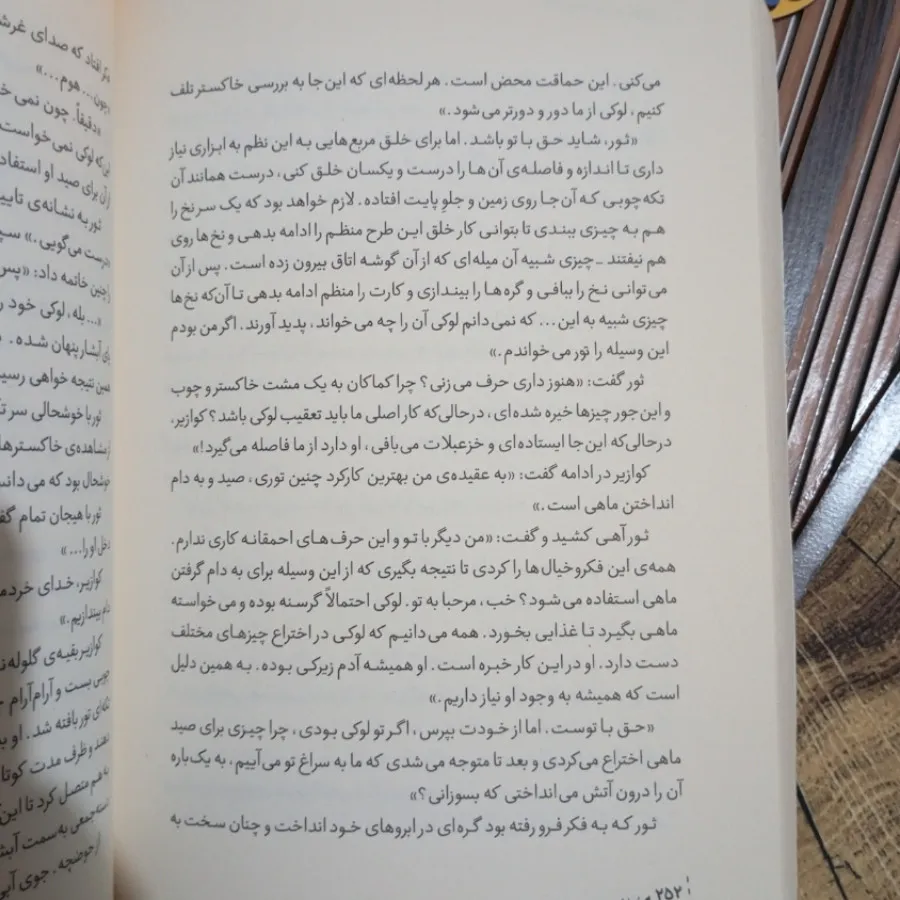 می‌کنی. این حماقت محض است. هر لحظه‌ای که این‌جا به بررسی خاکستر تلف
کنیم، لوکی از ما دور و دورتر می‌شود.»
«ثور، شاید حق با تو باشد. اما برای خلق مربع‌هایی به این نظم به ابزاری نیاز
داری تا اندازه و فاصله‌ی آن‌ها را درست و یکسان خلق کنی، درست همانند آن
تکه‌چوبی که آن‌جا روی زمین و جلوِ پایت افتاده. لازم خواهد بود که یک سر نخ را
هم به چیزی ببندی تا بتوانی کار خلق این طرح منظم را ادامه بدهی و نخ‌ها روی
هم نیفتند ـ چیزی شبیه آن میله‌ای که از آن گوشه اتاق بیرون زده است. پس از آن
می‌توانی نخ را ببافی و گره‌ها را بیندازی و کارت را منظم ادامه بدهی تا آن‌که نخ‌ها
چیزی شبیه به این... که نمی‌دانم لوکی آن را چه می‌خواند، پدید آورند. اگر من بودم
این وسیله را تور می‌خواندم.»
ثور گفت: «هنوز داری حرف می‌زنی؟ چرا کماکان به یک مشت خاکستر و چوب
و این‌جور چیزها خیره شده‌ای، درحالی‌که کار اصلی ما باید تعقیب لوکی باشد؟ کوازیر،
درحالی‌که این‌جا ایستاده‌ای و خزعبلات می‌بافی، او دارد از ما فاصله می‌گیرد!»
کوازیر در ادامه گفت: «به عقیده‌ی من بهترین کارکرد چنین توری، صید و به دام
انداختن ماهی است.»
ثور آهی کشید و گفت: «من دیگر با تو و این حرف‌های احمقانه کاری ندارم.
همه‌ی این فکر و خیال‌ها را کردی تا نتیجه بگیری که از این وسیله برای به دام گرفتن
ماهی استفاده می‌شود؟ خب، مرحبا به تو. لوکی احتمالاً گرسنه بوده و می‌خواسته
ماهی بگیرد تا غذایی بخورد. همه می‌دانیم که لوکی در اختراع چیزهای مختلف
دست دارد. او در این کار خبره است. او همیشه آدم زیرکی بوده. به همین دلیل
است که همیشه به وجود او نیاز داریم.»
«حق با توست. اما از خودت بپرس، اگر تو لوکی بودی، چرا چیزی برای صید
ماهی اختراع می‌کردی و بعد تا متوجه می‌شدی که ما به سراغ تو می‌آییم، به یک‌باره
آن را درون آتش می‌انداختی که بسوزانی؟»
ثور که به فکر فرو رفته بود گره‌ای در ابروهای خود انداخت و چنان سخت به
۲۵۲
که صدای
...هوم...»
«دقیقاً. چون نمی
که لوکی نمی‌خواست
برای صید او
ثور به نشانه‌ی
می‌گویی.»
چنین خاتمه داد: «پس
«...بله، لوکی خود
آبشار پنهان شده.
نتیجه خواهی
ثور با خوشحالی سر
مشاهده‌ی خاکسترها
خوشحال بود که
ثور با هیجان تمام
او را...»
کوازیر، خدای
بیندازیم.»
کوازیر بقیه‌ی
بست و آرام‌آرام
تور بافته شد. او
و ظرف مدت
به هم متصل کرد تا
به سمت
جوی